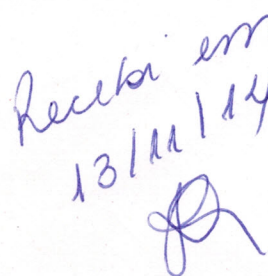 Recebi em
13/11/14